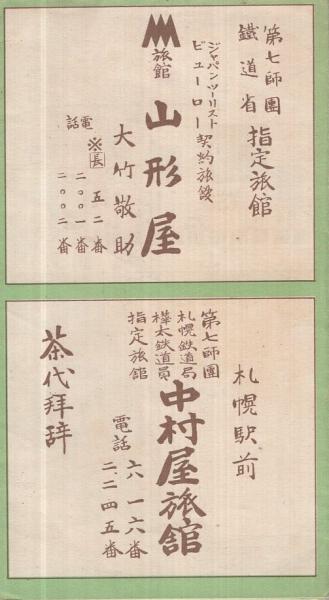 第七師團
鐵道省
指定旅館
ジャパンツーリスト
ビューロー契約旅館
旅館
山形屋
大竹敬助
電話
※長 五二番
二〇〇一番
二〇〇二番
札幌駅前
第七師團
札幌鉄道局
樺太鉄道員
指定旅館
中村屋旅舘
電話
六一六番
二、二四五番
茶代拝辞